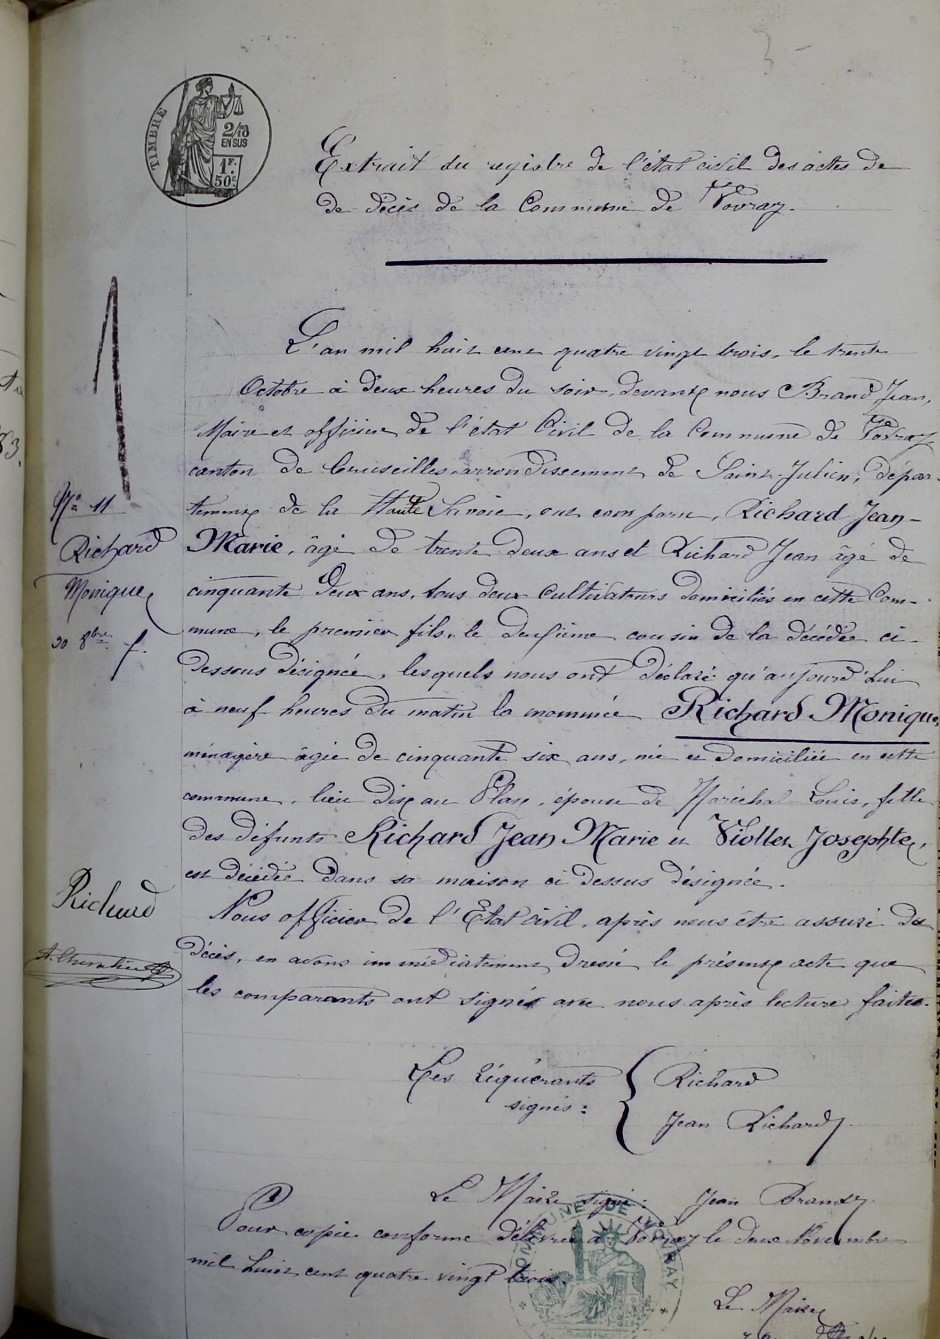 3
TIMBRE
2/10
EN SUS
1F.
50c
Extrait du registre de l'état civil des actes de
de décès de la Commune de Vovray.
L'an mil huit cent quatre vingt trois, le trente
Octobre à deux heures du soir, devant nous Brand Jean,
Maire et officier de l'état Civil de la Commune de Vovray
canton de Cruseilles arrondissement de Saint-Julien, dépar-
tement de la Haute Savoie, ont comparu, Richard Jean-
Marie, âgé de trente deux ans et Richard Jean âgé de
cinquante deux ans, tous deux cultivateurs domiciliés en cette Com-
mune, le premier fils, le deuxième cousin de la décédée ci-
dessous désignée, lesquels nous ont déclaré qu'aujourd'hui
à neuf heures du matin la nommée Richard Monique,
ménagère âgée de cinquante six ans, née et domiciliée en cette
commune, lieu dit au Plan, épouse de Maréchal Louis, fille
des défunts Richard Jean Marie et Viollet Josephte,
est décédée dans sa maison ci dessus désignée.
Nous officier de l'Etat civil, après nous être assuré du
décès, en avons immédiatement dressé le présent acte que
les comparants ont signé avec nous après lecture faite.
Les Réquérants
signés :
Richard
Jean Richard
Le Maire signé : Jean Brand
Pour copie conforme délivrée à Vovray le deux Novembre
mil huit cent quatre vingt trois.
Le Maire
COMMUNE DE VOVRAY
No 11
Richard
Monique
30 8bre f.
Richard